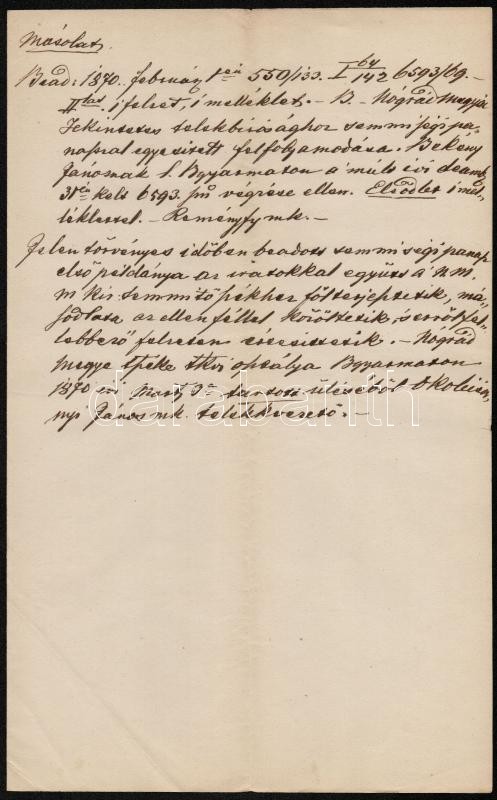 Másolat.
Bead: 1870. február 1én 550/133. I 64/142 6593/69.-
IItod. 1 felzet, 1 melléklet. - B. - Nógrád megyei
Tekintetes telekbirósághoz semmiségi pa-
naszszal egyesitett felfolyamodása. Bekeny
Jánosnak B.gyarmaton a múlt évi decemb
31én kelt 6593. sz végzése ellen. Elsődlet 1 mel-
léklettel. - Reményfy mk. -
Jelen törvényes időben beadott semmiségi panasz
első példánya az iratokkal együtt a n.m.
m kir semmitőszékhez fölterjesztetik, má-
sodlata az ellenféllel közöltetik, s erről fel-
lebbező felzeten értesittetik. - Nógrád
megye tszéke tkvi osztálya Bgyarmaton
1870 évi Mart 3án tartott üléséből Okolicsá-
nyi János mk. telekkvvezető. -
darabanth